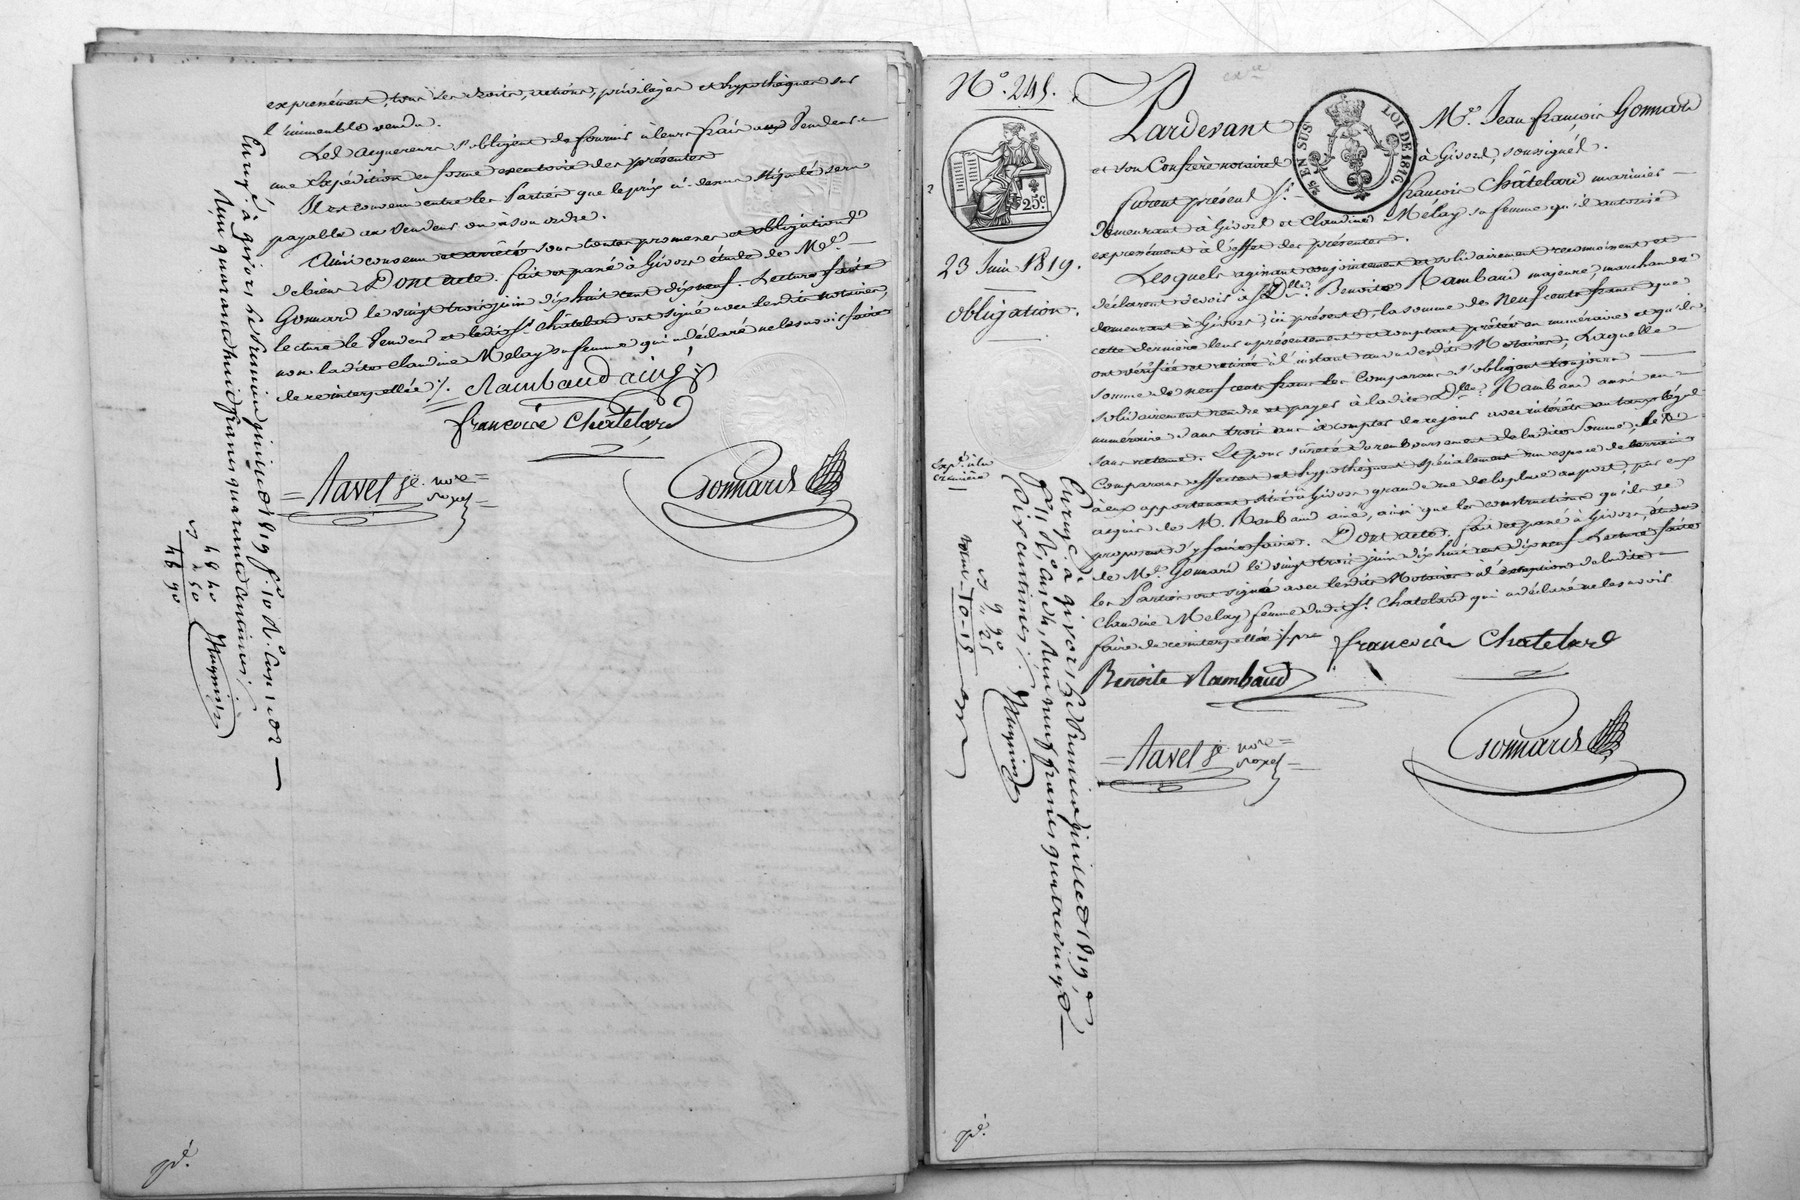 expressément, tous ses droits, actions, privilèges et hypothèques sur
l'immeuble vendu.
Les acquereurs s'obligent de fournir à leurs frais aux Vendeur
une Expédition en forme executoire des présentes
Il est convenu entre les Parties que le prix ci-dessus stipulé sera
payable au Vendeur ou à son ordre.
Ainsi convenu et arrêté sous toutes promesses et obligations
de biens. Dont acte. fait et passé à Givors étude de Me.
Gonnard le vingt trois juin dix huit cent dix neuf. Lecture faite
lecture le Vendeur et ledit Sr. Châtelard ont signé avec lesdits notaires,
non ladite Claudine Melay sa femme qui a déclaré ne le savoir faire
de ce interpellée ./.
Rambaud ainé
francois Chatelard
Navel je. nore
Gonnard
Enrgé. à givors le premier juillet 1819 fo. 10 Ro. Cases 1 et 2
Reçu quarante huit francs quarante centimes
44 40
4 50
48 90
No. 245.
25c.
23 Juin 1819.
Obligation.
EN SUS
LOI DE 1816.
Pardevant Me. Jean francois Gonnard
et son Confrère notaires à Givors, soussignés.
furent présent Sr. francois Châtelard marinier
demeurant à Givors et Claudine Mélay sa femme qu'il autorise
expressément à l'effet des présentes.
Lesquels agissant conjointement et solidairement reconnoissent et
déclarent devoir à Dlle. Benoite Rambaud majeure, marchande
demeurant à Givors, ici présente la somme de Neuf cents francs que
cette dernière leur a présentement et comptant prêtée en numéraires et qu'ils
ont vérifiée et retirée à l'instant au vu desdits Notaires, Laquelle
somme de neuf cents francs les Comparans s'obligent toujours
solidairement rendre et payer à ladite Dlle. Rambaud aussi en
numéraire dans trois ans à compter de ce jour avec intérêts au taux légal
sans retenue. Et pour sûreté du remboursement de ladite somme, les
Comparans affectent et hypothèquent spécialement un espace de terrein
à eux appartenant situé à Givors grande rue de la place au port, par eux
acquis de M. Rambaud ainé, ainsi que les constructions qu'ils se
proposent d'y faire faire. Dont acte. fait et passé à Givors, étude
de Me. Gonnard le vingt trois juin dix huit cent dix neuf Lecture faite
les Parties ont signé avec lesdits Notaires à l'exception de ladite
Claudine Melay femme dudit Sr. Chatelard qui a déclaré ne le savoir
faire de ce interpellée ./.
francois Chatelard
Benoite Rambaud
Navel je. nore
Gonnard
Enrgé. à givors le premier juillet 1819,
fo. 11 Ro. Case 4, Reçu neuf francs quatre vingt
dix centimes
9 90